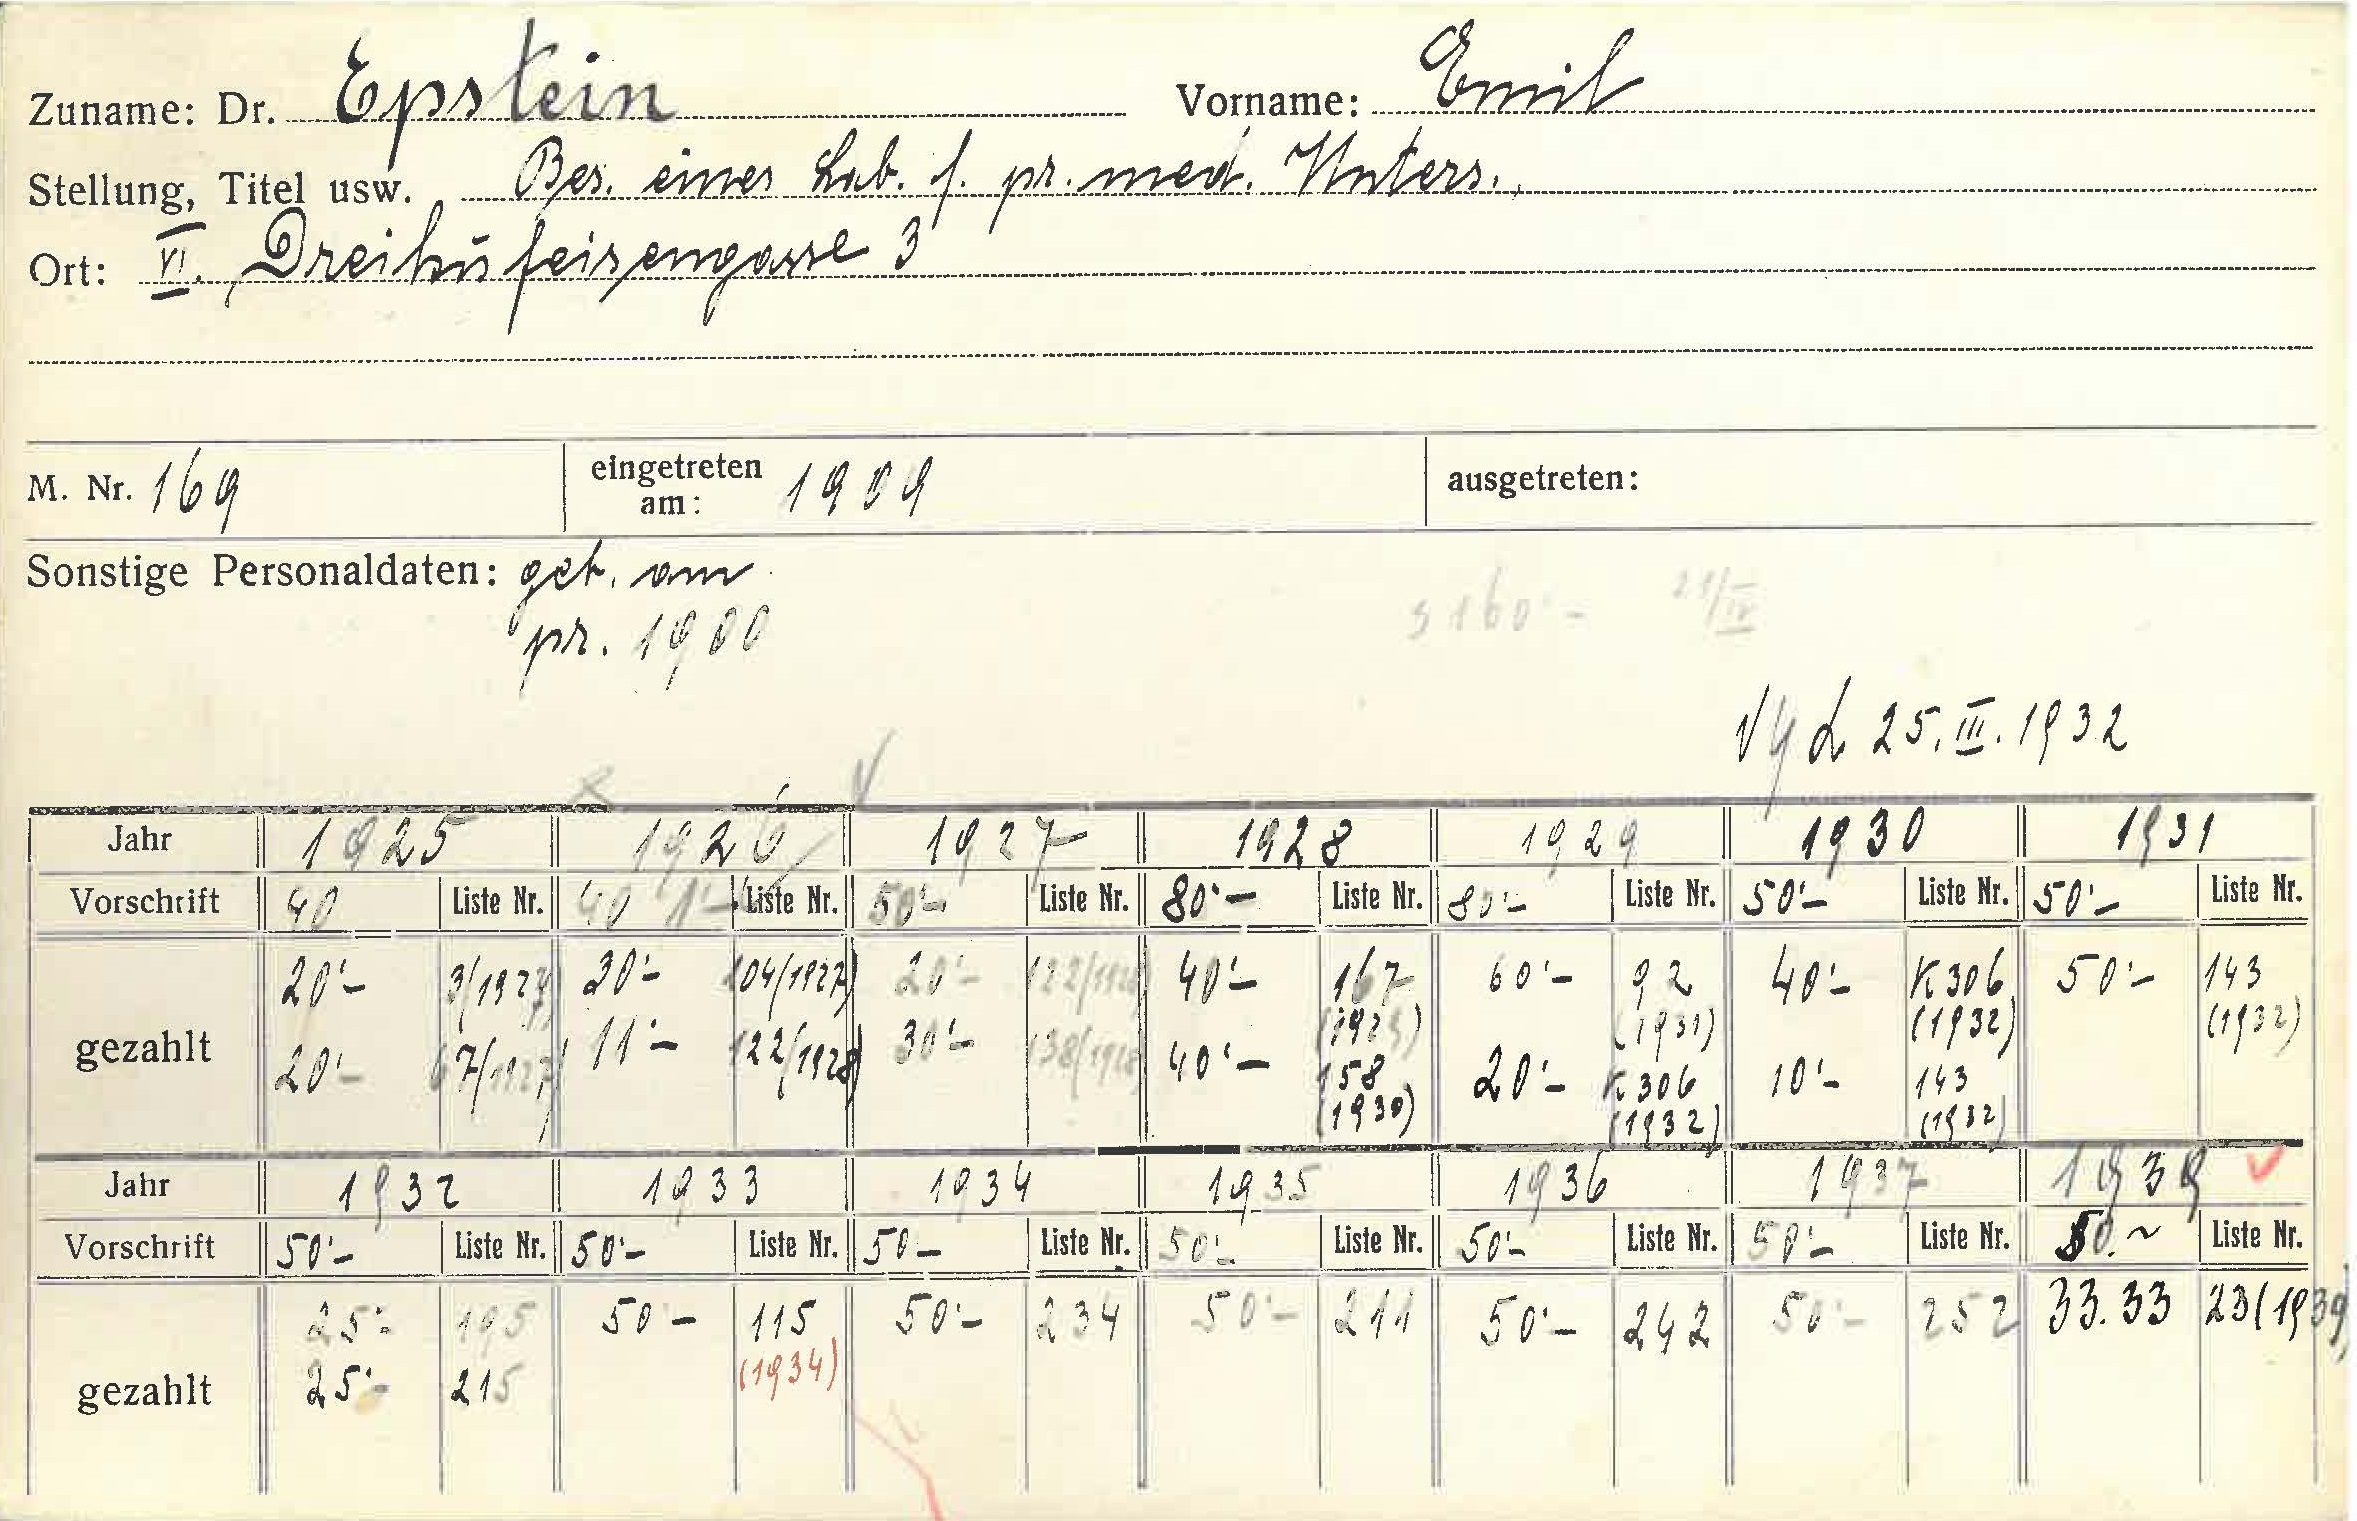 Zuname: Dr. Epstein Vorname: Emil
Stellung, Titel usw. Bes. eines Lab. f. pr. med. Unters.
Ort: VI. Dreihufeisengasse 3
M. Nr. 169 eingetreten am: 1909 ausgetreten:
Sonstige Personaldaten: geb. am
pr. 1900
S 160'- 21/IV
25. III. 1932
Jahr 1925 1926 1927 1928 1929 1930 1931
Vorschrift 40 Liste Nr. 40 1'- Liste Nr. 50'- Liste Nr. 80'- Liste Nr. 80'- Liste Nr. 50'- Liste Nr. 50'- Liste Nr.
gezahlt
20'- 3/1927 30'- 104/1927) 20'- 122/1928) 40'- 167 60'- 92 40'- K 306 50'- 143
(1931) (1932) (1932)
20'- 67/1927) 11'- 122/1928) 30'- 138/1928 40'- 158 20'- K 306 10'- 143
(1930) (1932) (1932)
Jahr 1932 1933 1934 1935 1936 1937 1939
Vorschrift 50'- Liste Nr. 50'- Liste Nr. 50- Liste Nr. 50'- Liste Nr. 50'- Liste Nr. 50'- Liste Nr. 50.~ Liste Nr.
gezahlt
25'- 195 50'- 115 50'- 234 50'- 211 50'- 242 50'- 252 33.33 23(1939)
25'- 215 (1934)